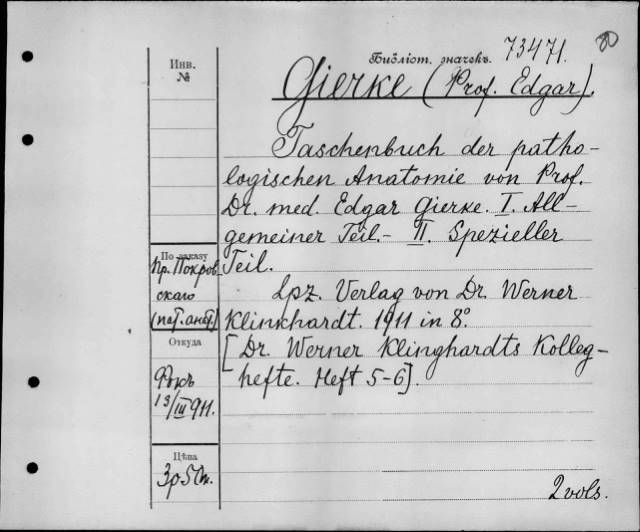 Библіот. значекъ. 73471.
Инв.
№
Gierke (Prof. Edgar).
Taschenbuch der patho-
logischen Anatomie von Prof.
Dr. med. Edgar Gierke. I. All-
gemeiner Teil.- II. Spezieller
Teil.
По заказу
Пр. Покров
скаго
(пат. анат.)
Lpz. Verlag von Dr. Werner
Klinkhardt. 1911 in 8°.
[Dr. Werner Klinghardts Kolleg-
hefte. Heft 5-6].
Откуда
13/III 911.
Цѣна
2 vols.